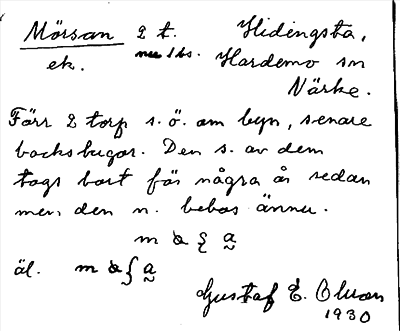 Mörsan 2 t. Hidingsta,
ek. nu 1 bs. Hardemo sn
Närke.
Förr 2 torp s. ö. om byn, senare
backstugor. Den s. av dem
togs bort för några år sedan
men den n. bebos ännu.
äl. m
Gustaf E.
1930